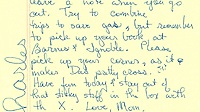 leave a note when you go
out. Try to combine
trips to save gas, but remember
to pick up your book at
Barnes & Noble. Please
pick up your as it
makes Dad Cross.
Have fun today & stay out of
that stuff in the box with
the Love, Mom.
Charles